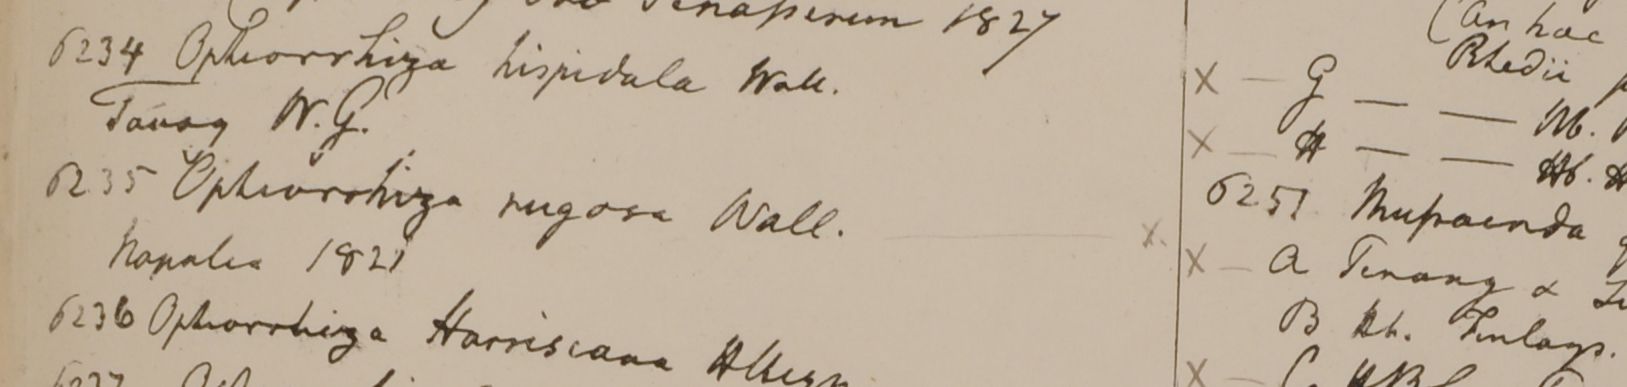 Tenasserim 1827
6234 Ophiorrhiza hispidula Wall.
Tavoy W.G.
6235 Ophiorrhiza rugosa Wall. X.
Napalia 1821
6236 Ophiorrhiza Harrisiana
6237
(An hac
Rhedii
X — G — — Hb.
X — H — — Hb. H
6251 Mussaenda
X — A Penang &
B Hb. Finlays.
X — C HB